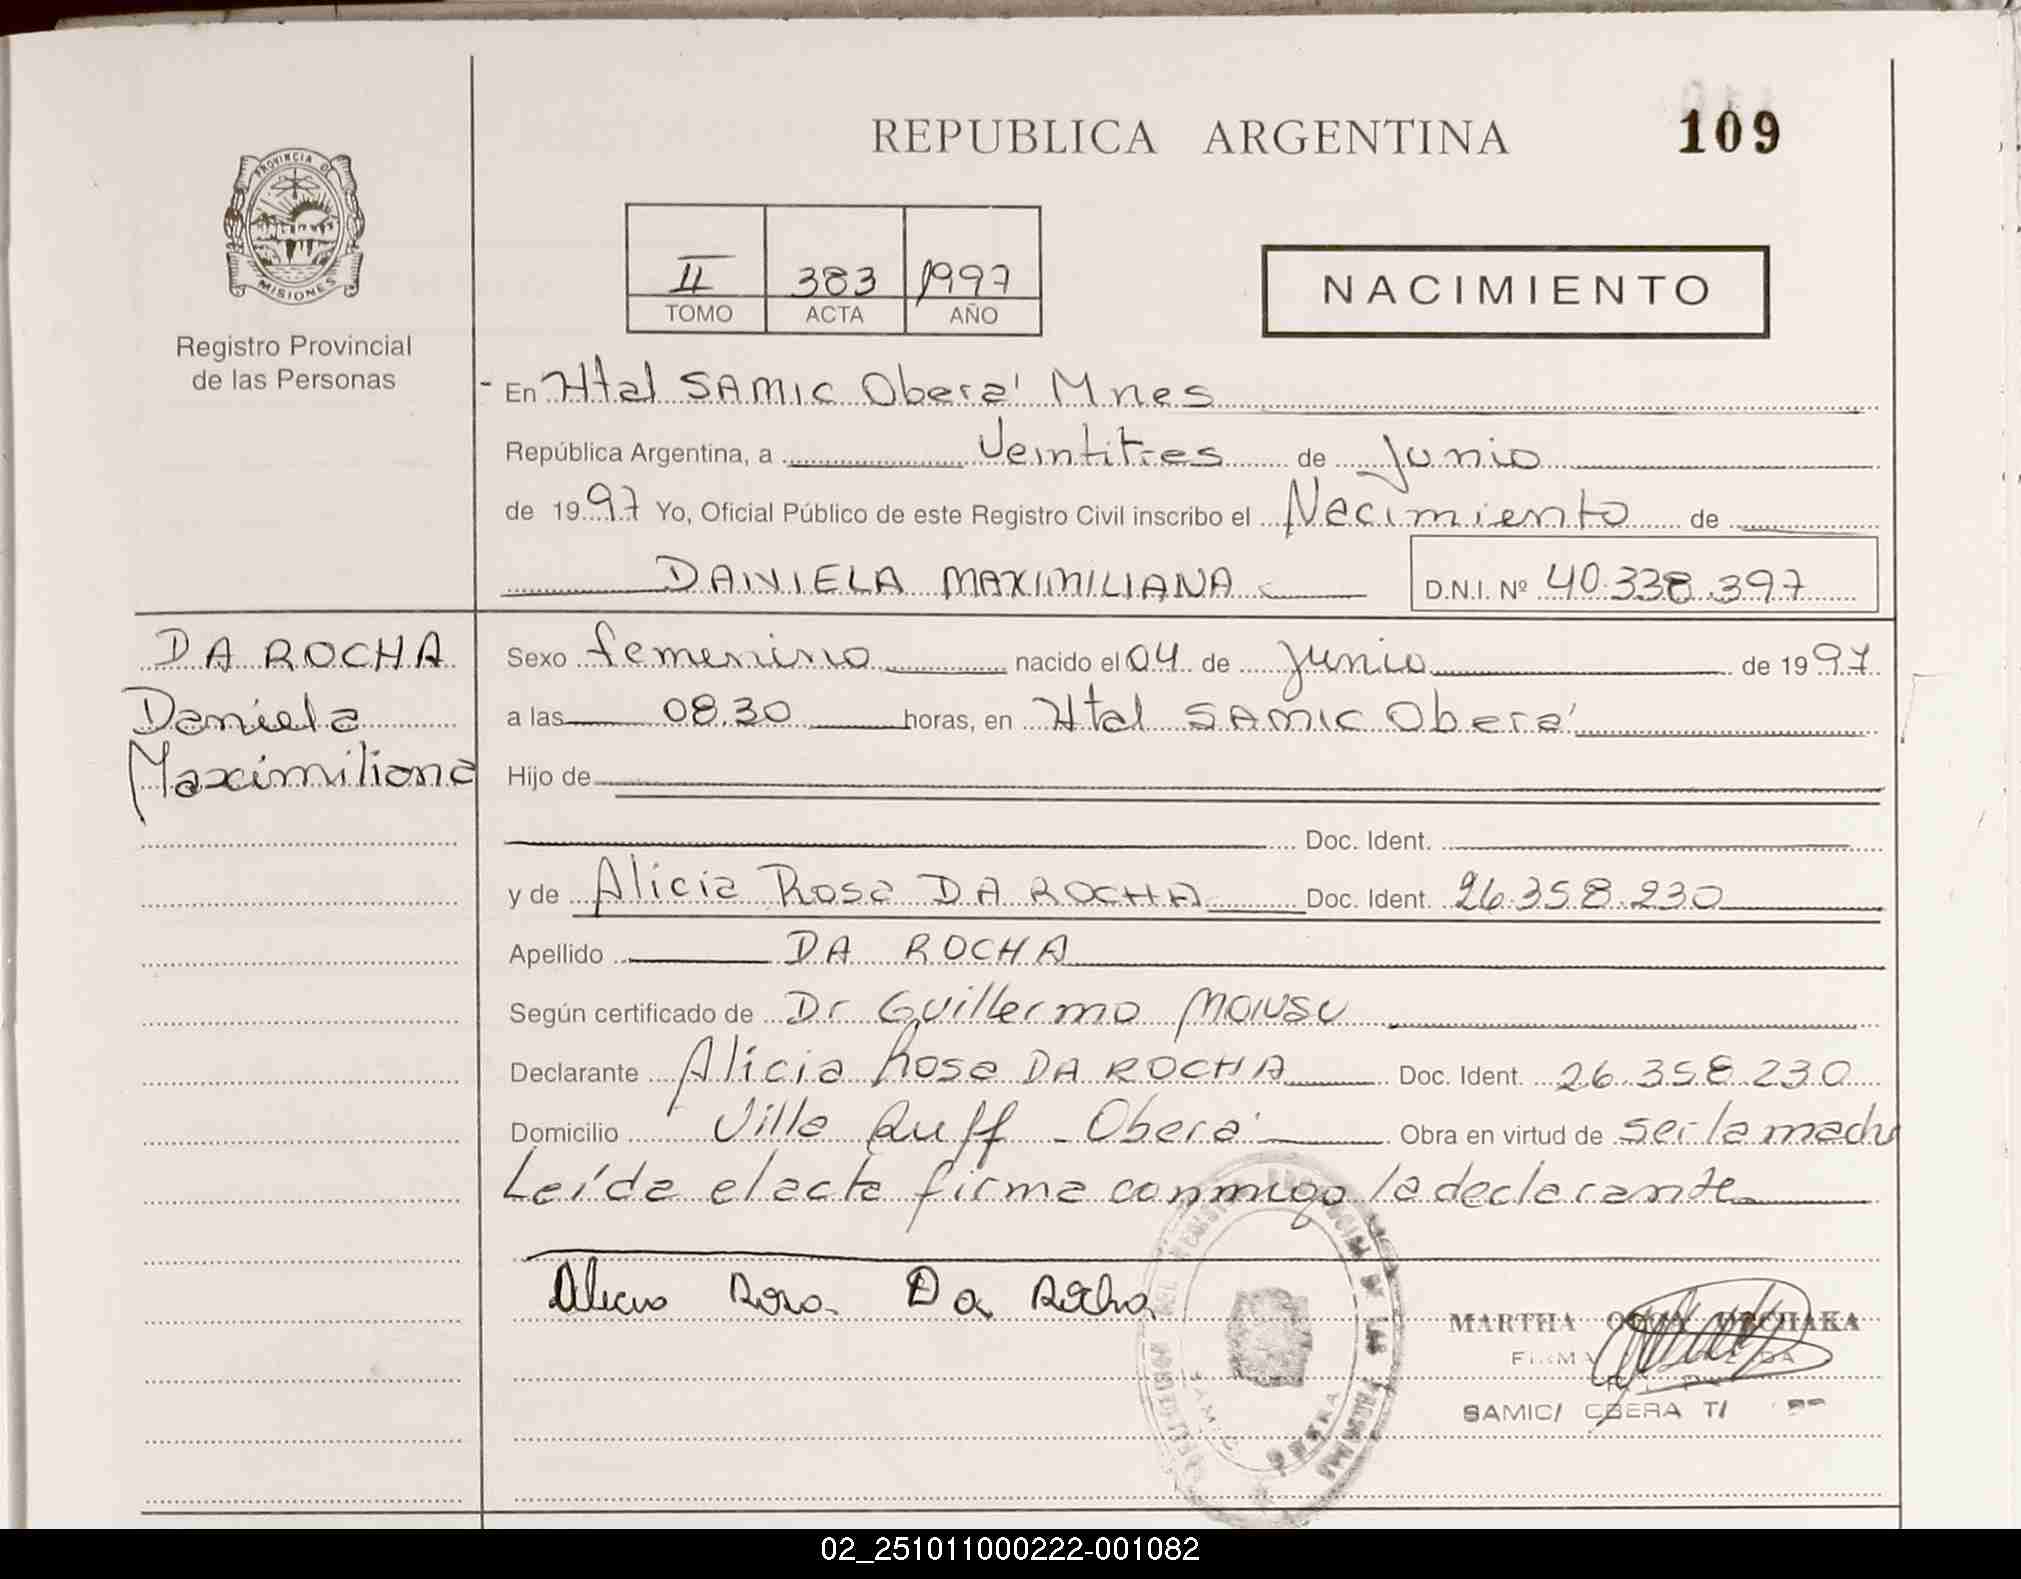 REPUBLICA ARGENTINA
109
PROVINCIA DE
MISIONES
Registro Provincial
de las Personas
II 383 1997
TOMO ACTA AÑO
NACIMIENTO
- En Htal SAMIC Oberá Mnes
República Argentina, a Veintitres de Junio
de 1997 Yo, Oficial Público de este Registro Civil inscribo el Nacimiento de
DANIELA MAXIMILIANA
D.N.I. Nº 40.338.397
DA ROCHA
Daniela
Maximiliana
Sexo femenino nacido el 04 de junio de 1997
a las 08.30 horas, en Htal SAMIC Oberá
Hijo de
Doc. Ident.
y de Alicia Rosa DA ROCHA Doc. Ident. 26.358.230
Apellido DA ROCHA
Según certificado de Dr Guillermo
Declarante Alicia Rosa DA ROCHA Doc. Ident. 26.358.230
Domicilio Villa Ruff - Oberá Obra en virtud de ser la madre
Leída el acta firma conmigo la declarante
Alicia Rosa Da Rocha
MARTHA
SAMIC/ OBERA
02_251011000222-001082